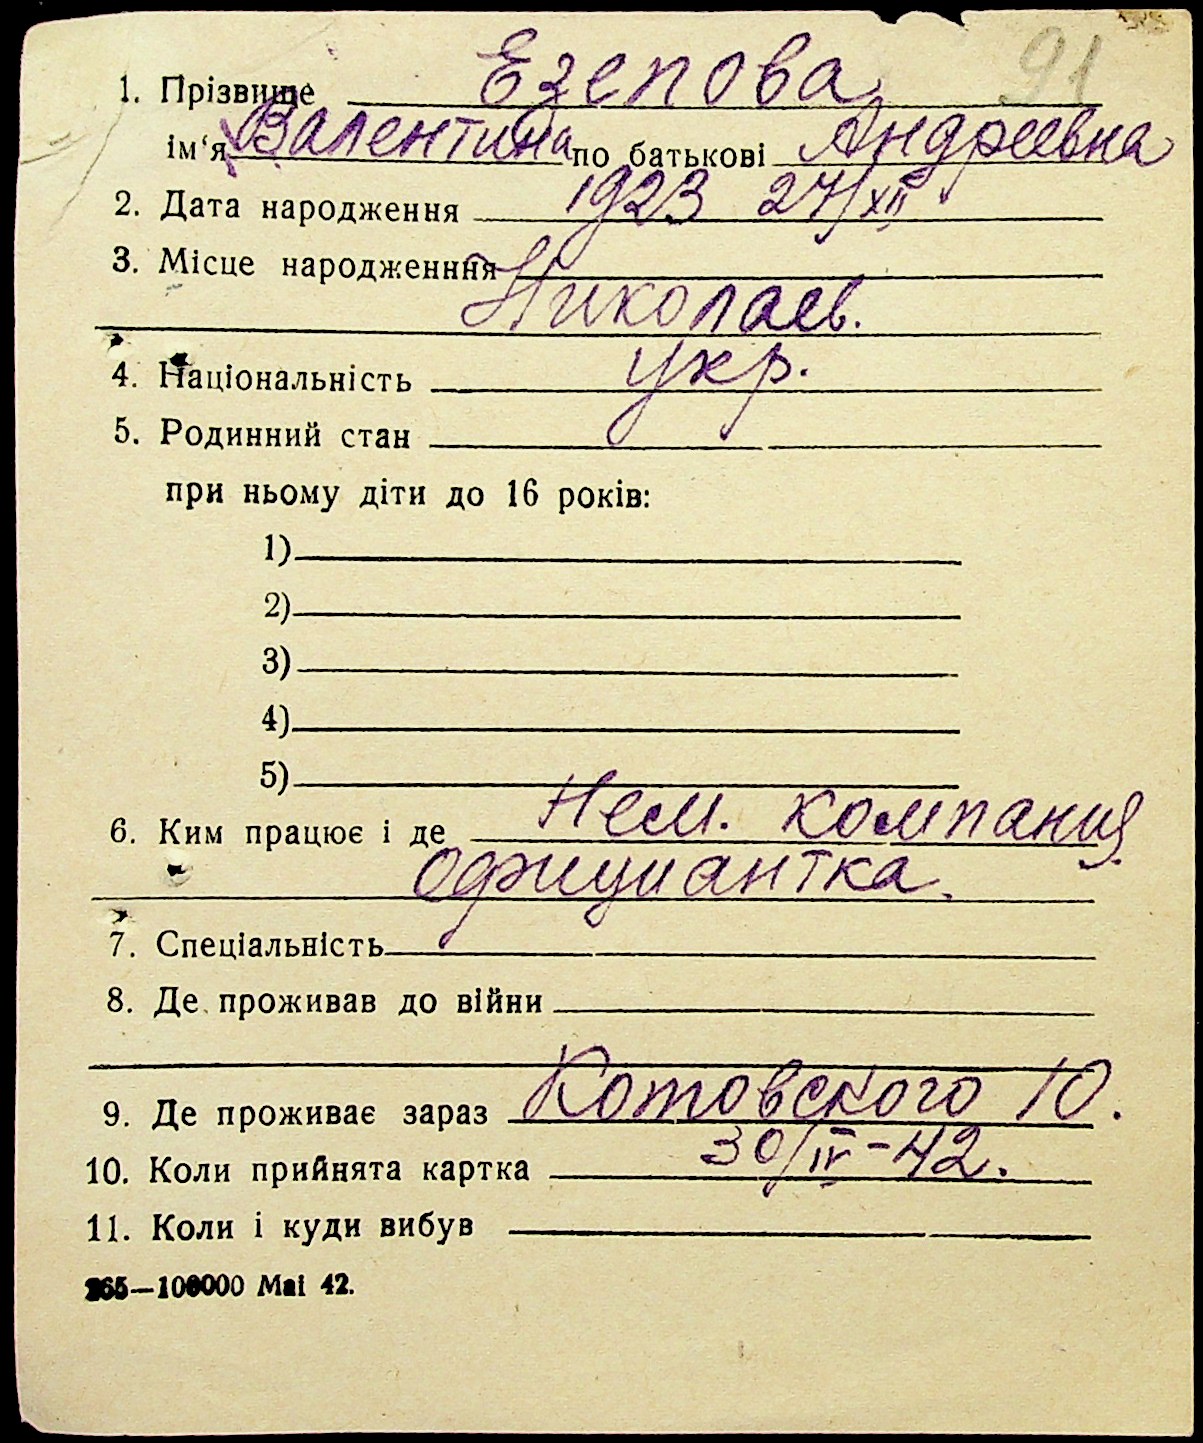 91
1. Прізвище Езепова
ім‘я Валентина по батькові Андреевна
2. Дата народження 1923 27/XII
3. Місце народженння
Николаев.
4. Національність укр.
5. Родинний стан
при ньому діти до 16 років:
1)
2)
3)
4)
5)
6. Ким працює і де Нем. компания
официантка.
7. Спеціальність
8. Де проживав до війни
9. Де проживає зараз Котовского 10.
10. Коли прийнята картка 30/IV-42.
11. Коли і куди вибув
265—100000 Mai 42.